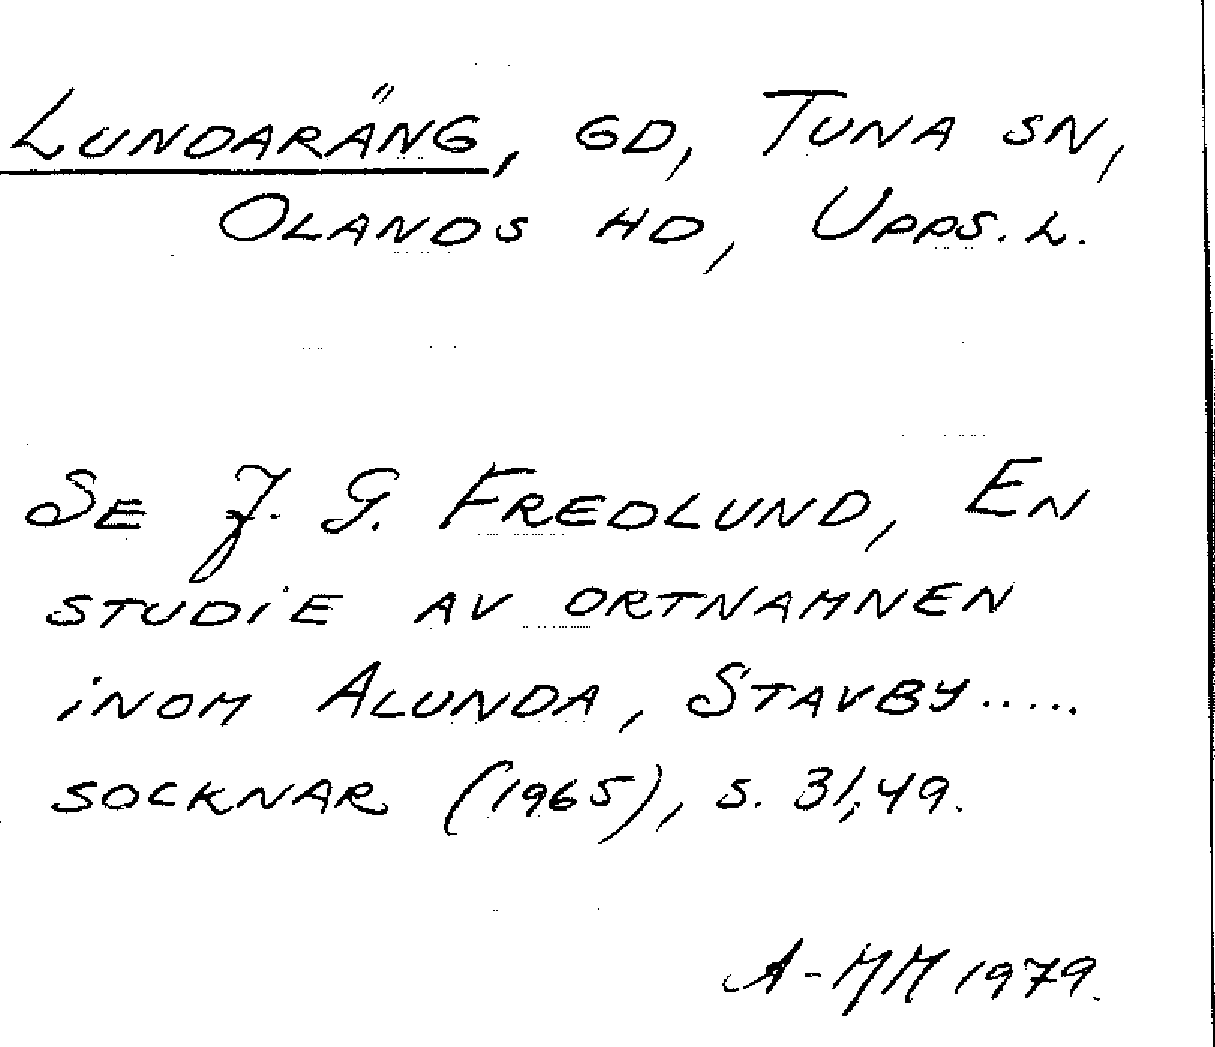 LUNDARÄNG, GD, TUNA SN,
OLANDS HD, UPPS. L.
SE J. G. FREDLUND, EN
STUDIE AV ORTNAMNEN
INOM ALUNDA, STAVBY.....
SOCKNAR (1965), S. 31, 49.
A-MM 1979.